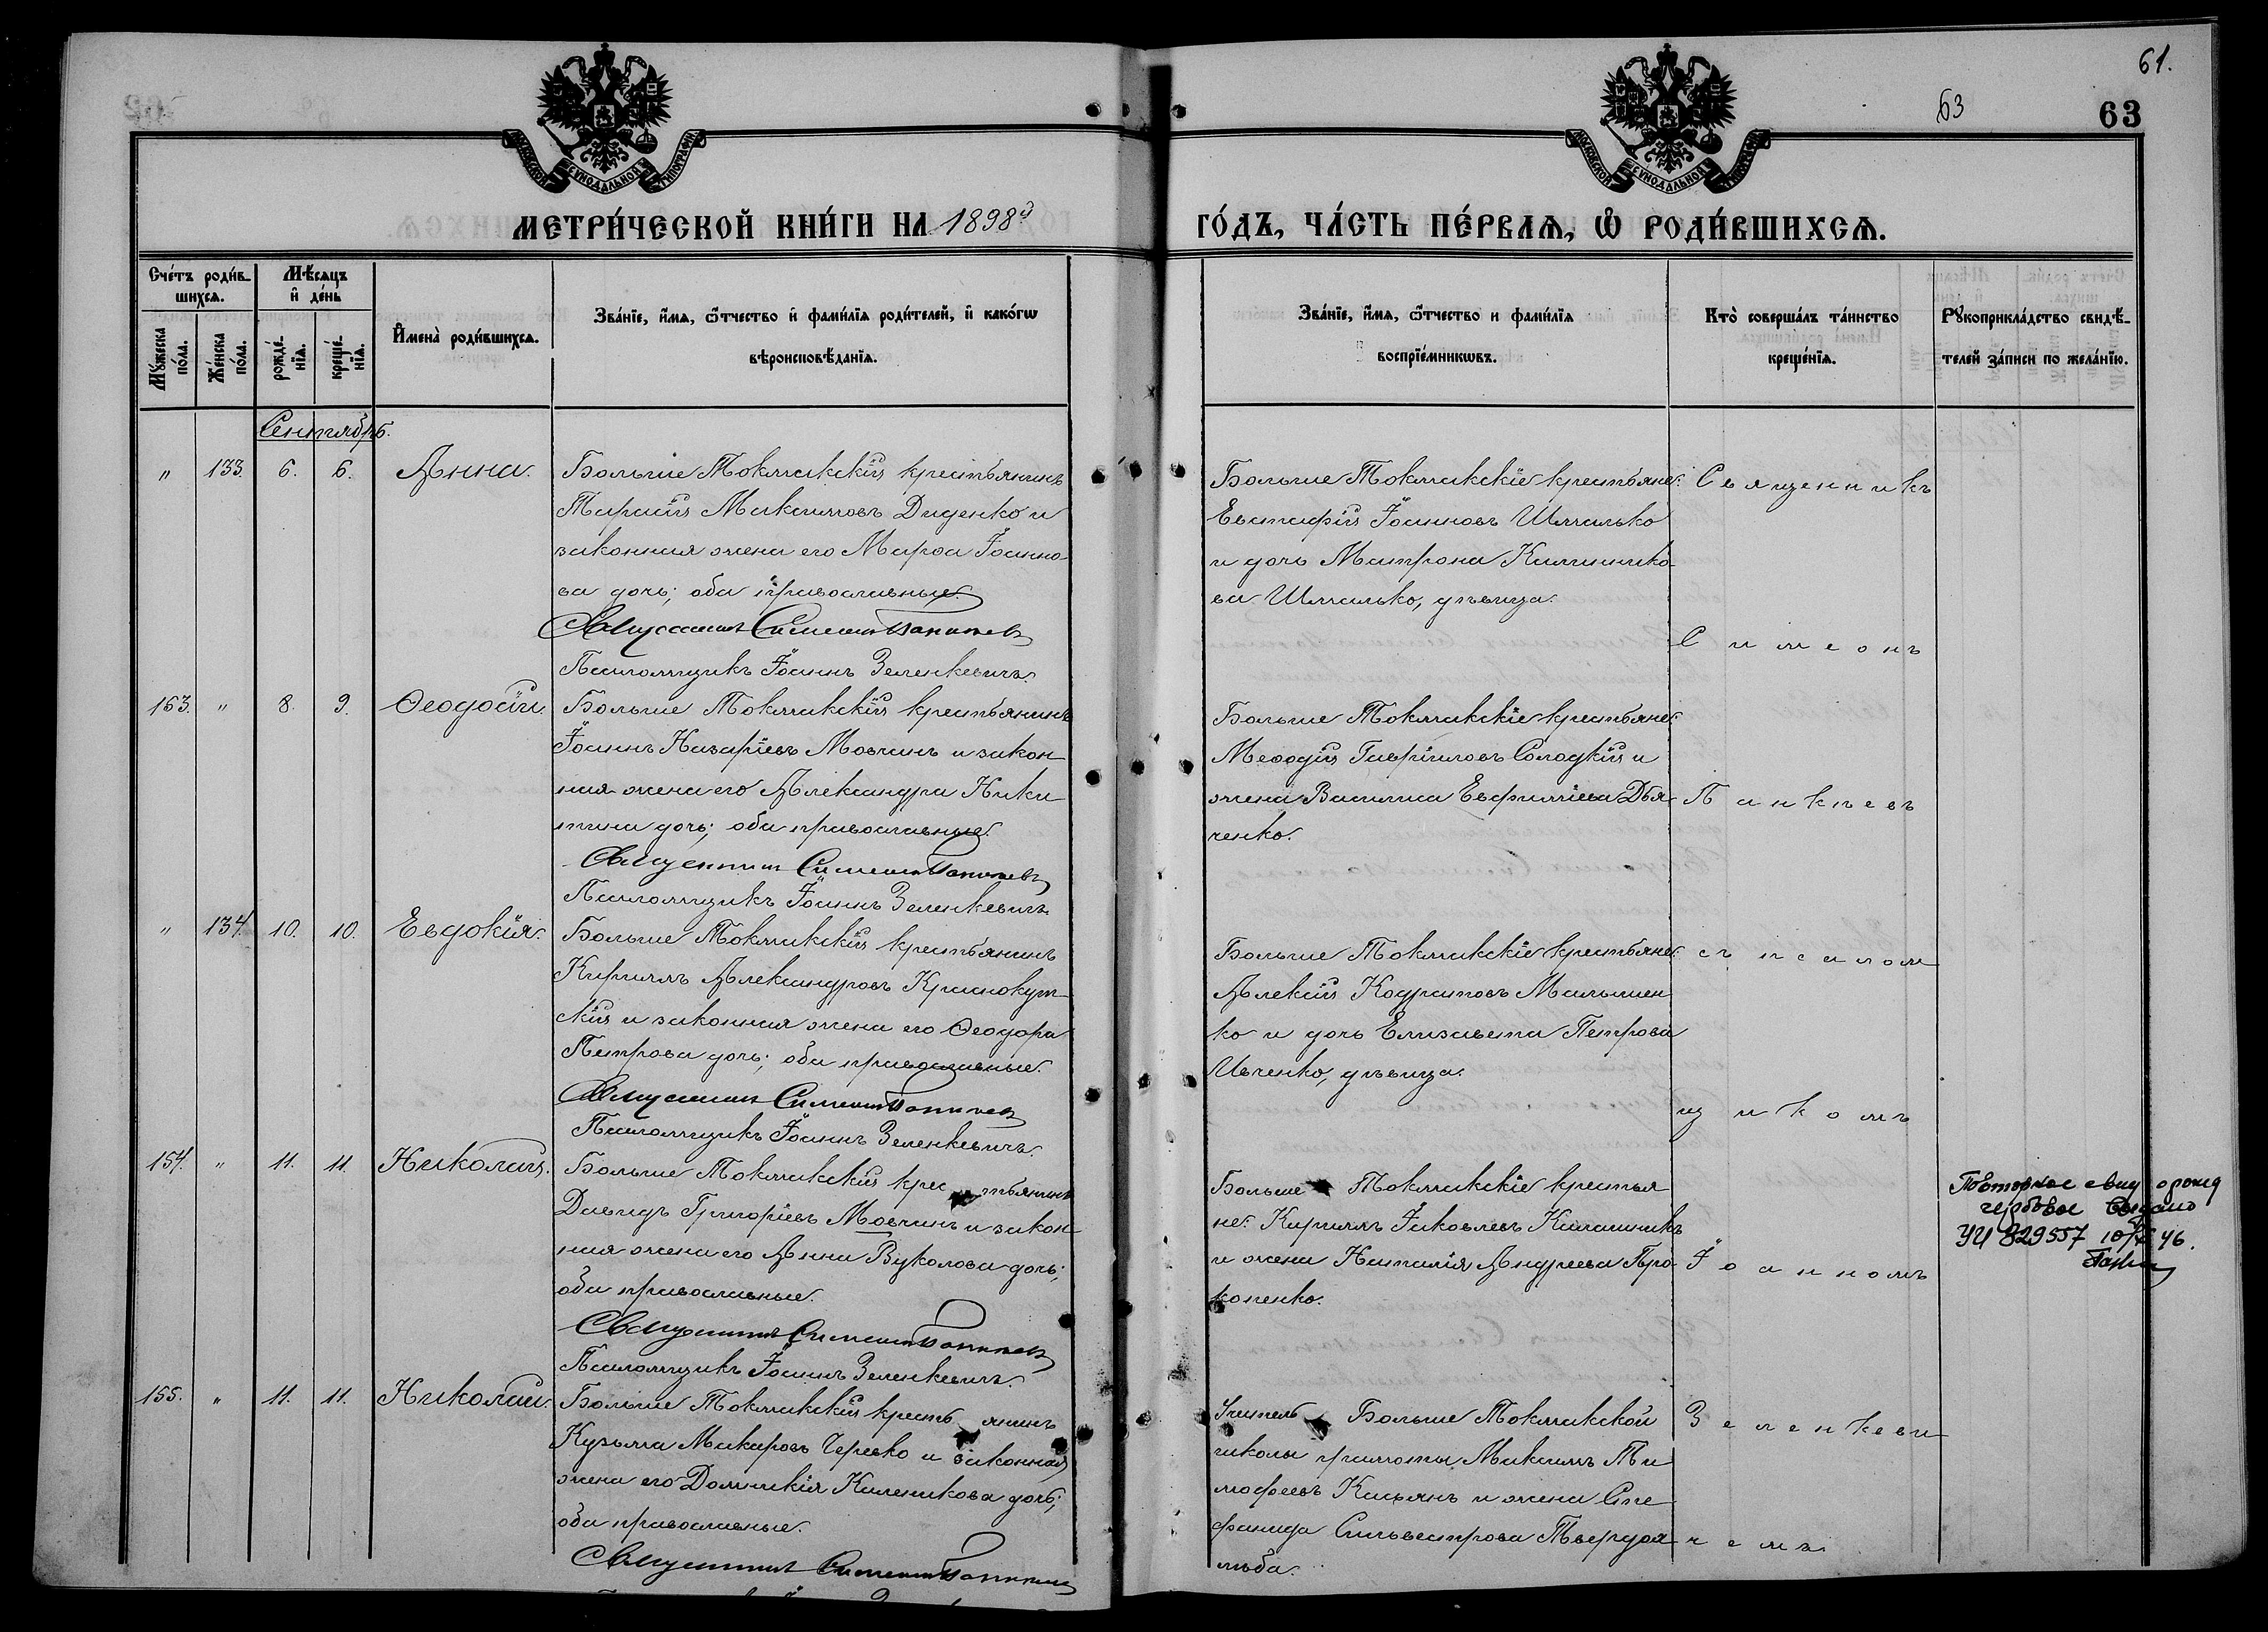 61.
63
63
МОСКОВСКОЙ СѴНОДАЛЬНОЙ ТИПОГРАФІИ
МОСКОВСКОЙ СѴНОДАЛЬНОЙ ТИПОГРАФІИ
МЕТРИ́ЧЕСКОЙ КНИ́ГИ НА 1898й
ГО́ДЪ, ЧА́СТЬ ПЕ́РВАѦ, Ѡ҆ РОДИ́ВШИХСѦ.
Сче́тъ роди́в-
шихсѧ.
Мѣ́сѧцъ
и҆ де́нь
Мꙋ́жеска
по́ла.
Же́нска
по́ла.
рожде́-
нїѧ.
креще́-
нїѧ.
И҆мена̀ роди́вшихсѧ.
Зва́нїе, и҆́мѧ, ѻ҆́тчество и҆ фами́лїѧ роди́телей, и҆ како́гѡ
вѣроисповѣ́данїѧ.
Зва́нїе, и҆́мѧ, ѻ҆́тчество и фами́лїѧ
воспрїе́мникѡвъ.
Кто̀ соверша́лъ та́инство
креще́нїѧ.
Рꙋкоприкла́дство свидѣ́-
телей за́писи по жела́нїю.
Сентябрь.
" 133. 6. 6. Анна.
Больше Токмакскій крестьянинъ
Тарасій Максимовъ Диденко и
законная жена его Марѳа Іоанно-
ва дочь; оба православные.
Священникъ Симеонъ Панкѣевъ
Псаломщикъ Іоаннъ Зеленкевичъ.
Больше Токмакскіе крестьяне:
Евстафій Іоанновъ Шмалько
и дочь Матрона Калинико-
ва Шмалько, дѣвица.
163. " 8. 9. Ѳеодосій.
Больше Токмакскій крестьянинъ
Іоаннъ Назаріевъ Мовчанъ и закон-
ная жена его Александра Ники-
тина дочь; оба православные.
Священникъ Симеонъ Панкѣевъ
Псаломщикъ Іоаннъ Зеленкевичъ.
Больше Токмакскіе крестьяне:
Меѳодій Гавріиловъ Солодкій и
жена Василиса Евфиміева Дья-
ченко.
" 134. 10. 10. Евдокія.
Больше Токмакскій крестьянинъ
Кириллъ Александровъ Краснокут-
скій и законная жена его Ѳеодора
Петрова дочь; оба православные.
Священникъ Симеонъ Панкѣевъ
Псаломщикъ Іоаннъ Зеленкевичъ.
Больше Токмакскіе крестьяне:
Алексій Кодратовъ Мальшен-
ко и дочь Елизавета Петрова
Ивченко, дѣвица.
154. " 11. 11. Николай.
Больше Токмакскій крестьянинъ
Давидъ Григоріевъ Мовчанъ и закон-
ная жена его Анна Вуколова дочь;
оба православные.
Священникъ Симеонъ Панкѣевъ
Псаломщикъ Іоаннъ Зеленкевичъ.
Больше Токмакскіе крестья-
не: Кириллъ Іаковлевъ Калашникъ
и жена Наталія Андреева Про-
копенко.
Повторное свид о рожд
гербовое выдано
УЧ 829557 10/X 46.
155. " 11. 11. Николай.
Больше Токмакскій крестьянинъ
Кузьма Макаровъ Черевко и законная
жена его Домникія Калиникова дочь;
оба православные.
Священникъ Симеонъ Панкѣевъ
Учитель Больше Токмакской
школы грамоты Максимъ Ти-
мофеевъ Касьянъ и жена Сте-
фанида Сильвестрова Твердох-
лѣба.
Священникъ
Симеонъ
Панкѣевъ
съ псалом-
щикомъ
Іоанномъ
Зеленкеви-
чемъ.